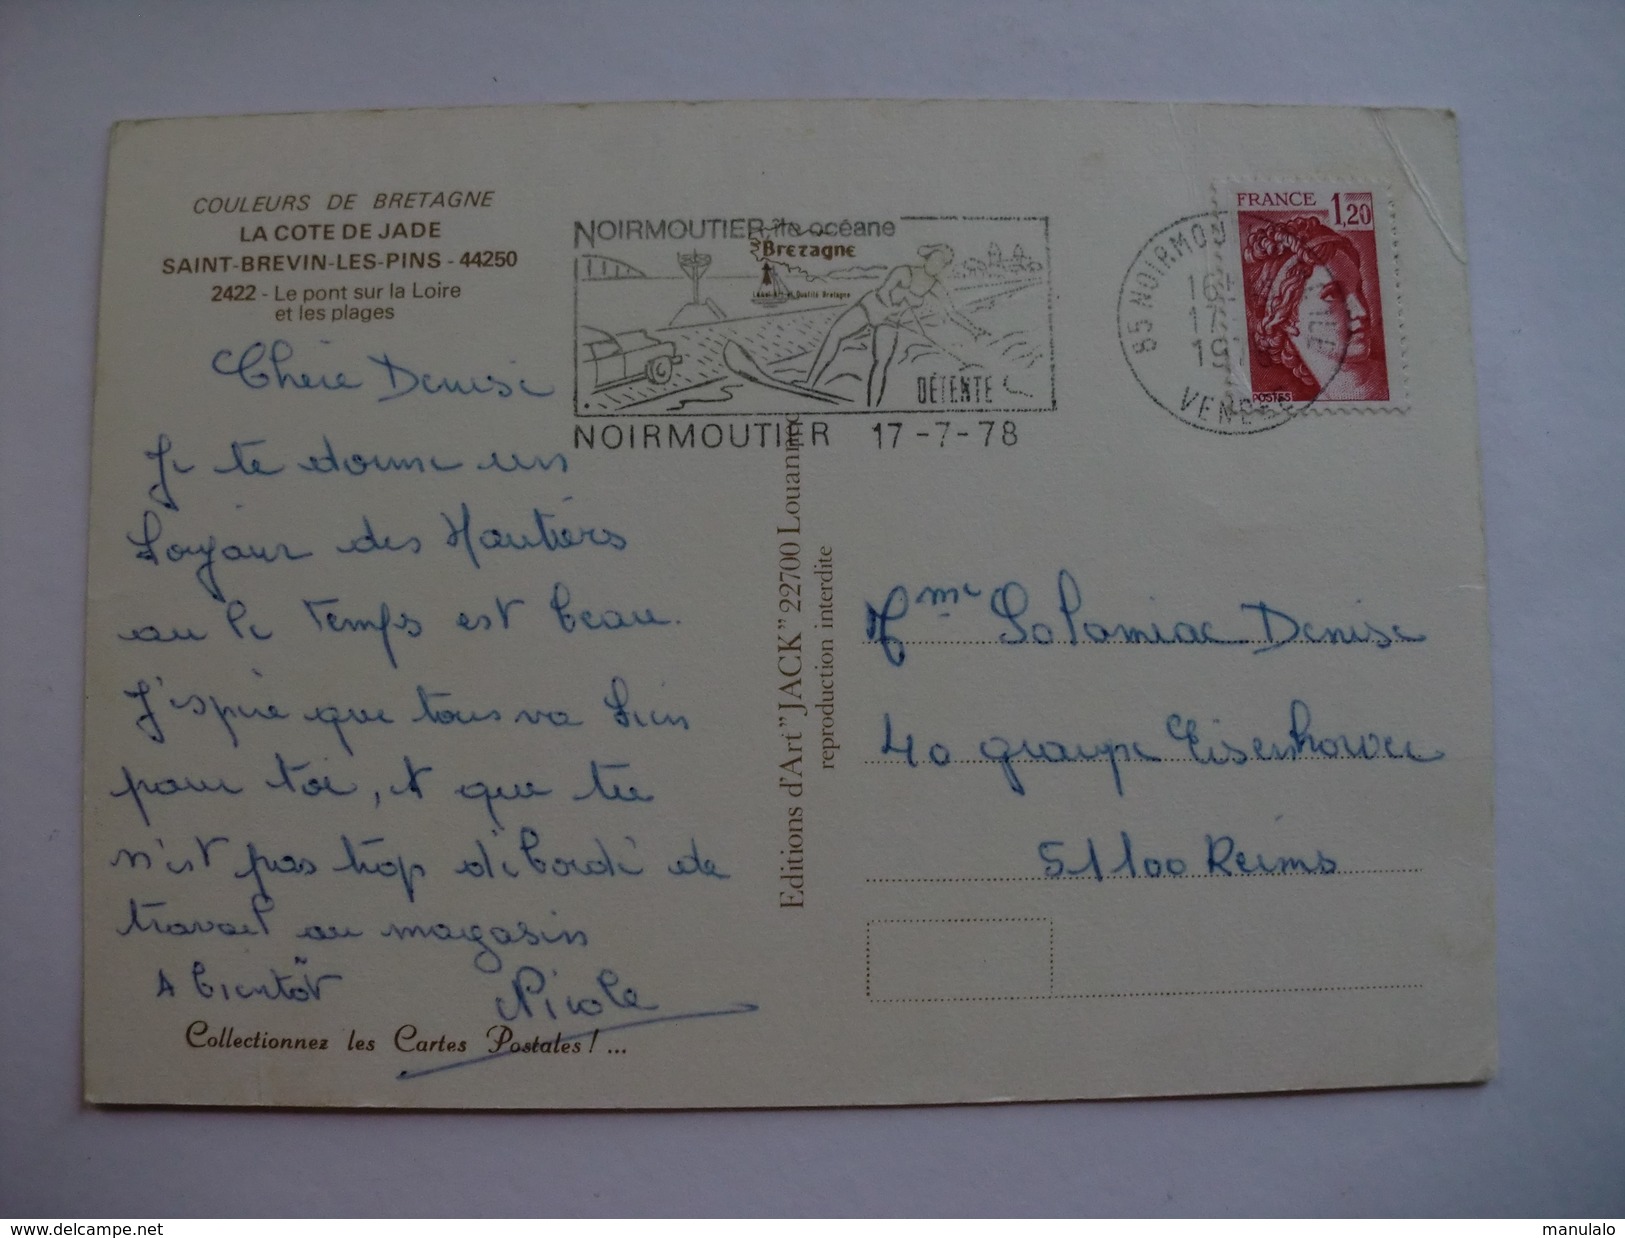 COULEURS DE BRETAGNE
LA COTE DE JADE
SAINT-BREVIN-LES-PINS - 44250
2422 - Le pont sur la Loire
et les plages
NOIRMOUTIER île océane
Bretagne
DÉTENTE
NOIRMOUTIER 17-7-78
85 NOIRMOUT
VENDEE
FRANCE 1,20
POSTES
Chère Denise
Je te donne un
bonjour des Moutiers
ou le temps est beau.
J'espère que tous va bien
pour toi, et que tu
n'est pas trop débordé de
travail au magasin
A bientôt Nicole
Collectionnez les Cartes Postales ! ...
Editions d'Art "JACK" 22700 Louannec
reproduction interdite
Mme Solamiac Denise
40 groupe Eisenhower
51100 Reims
delcampe.net
manulalo